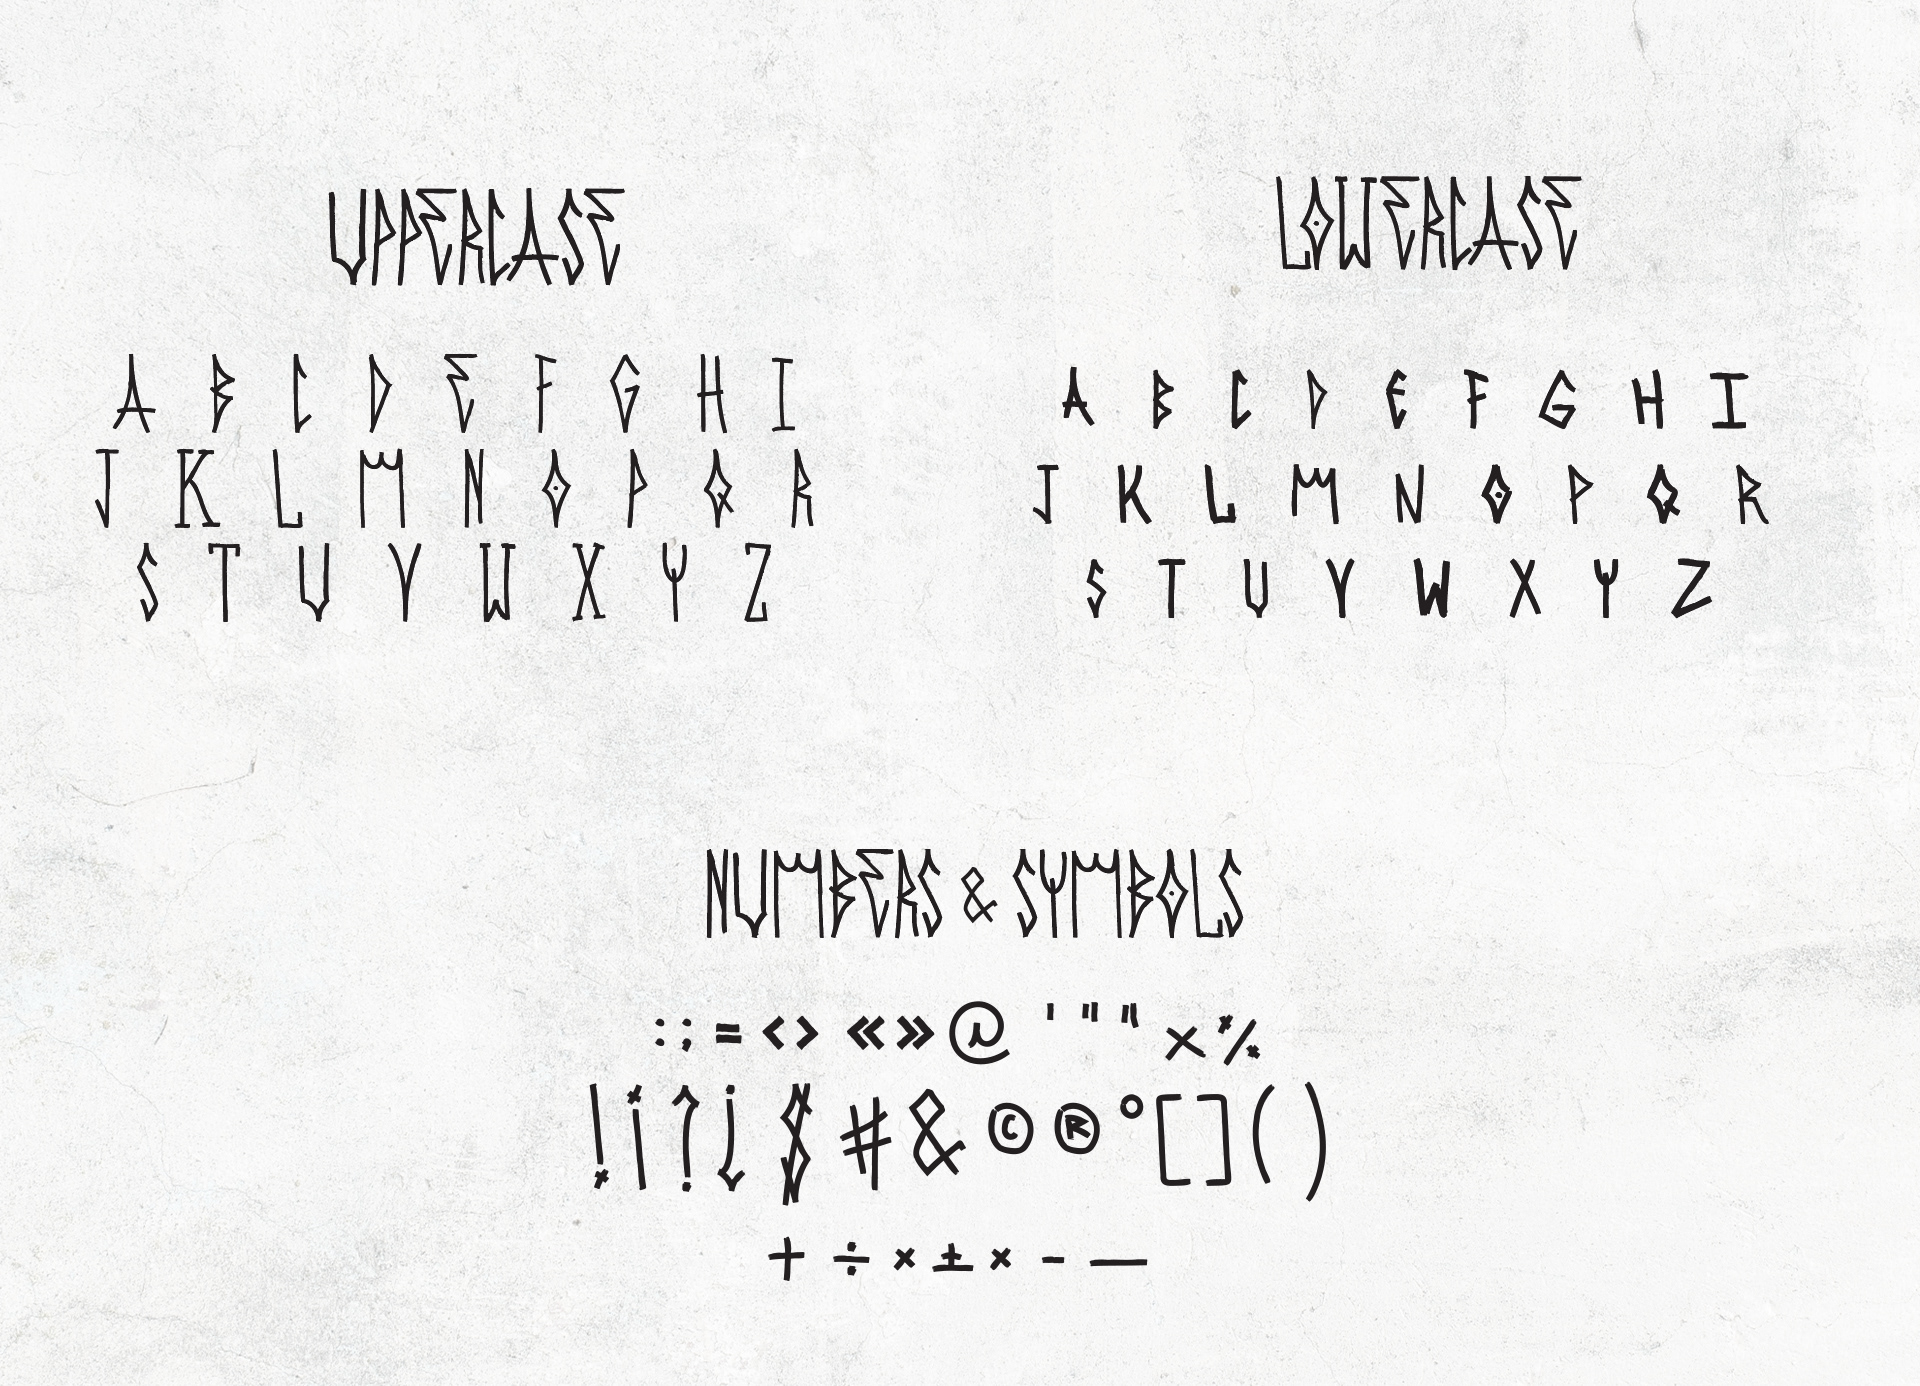 UPPERCASE
A B C D E F G H I
J K L M N O P Q R
S T U V W X Y Z
LOWERCASE
A B C D E F G H I
J K L M N O P Q R
S T U V W X Y Z
NUMBERS & SYMBOLS
: ; = < > « » @ ' " " × %
! ¡ ? ¿ $ # & © ® ° [ ] ( )
+ ÷ × ± × - —